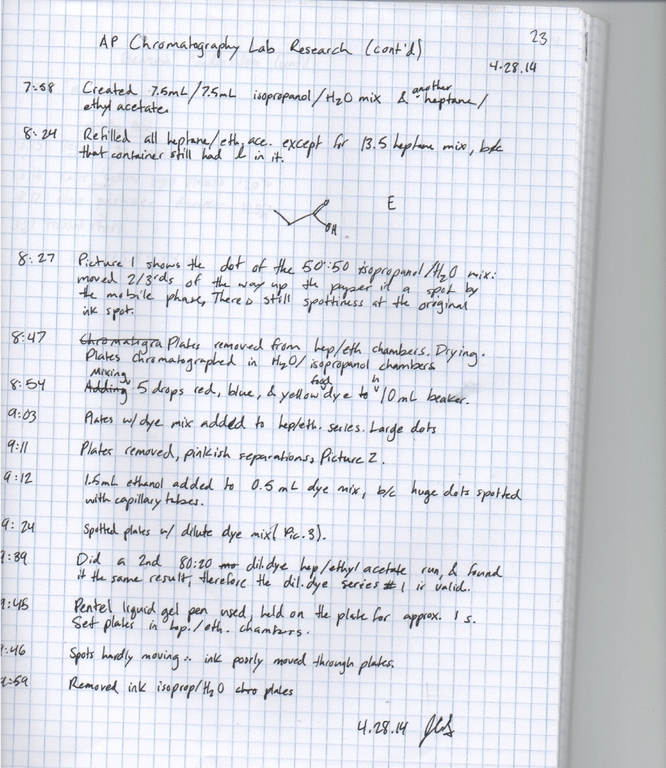 23
AP Chromatography Lab Research (cont'd)
4.28.14
7:58 Created 7.5mL/7.5mL isopropanol/H2O mix & another heptane/
ethyl acetate.
8:24 Refilled all heptane/eth. ace. except for 13.5 heptane mix, b/c
that container still had l in it.
E
OH
8:27 Picture 1 shows the dot of the 50:50 isopropanol/H2O mix:
moved 2/3rds of the way up the paper in a spot by
the mobile phase, There is still spottiness at the original
ink spot.
8:47 Chromatogra Plates removed from hep/eth chambers. Drying.
Plates chromatographed in H2O/isopropanol chambers
8:54 Adding Mixing 5 drops red, blue, & yellow food dye to in 10 mL beaker.
9:03 Plates w/ dye mix added to hep/eth. series. Large dots
9:11 Plates removed, pinkish separations, Picture 2.
9:12 1.5mL ethanol added to 0.5 mL dye mix, b/c huge dots spotted
with capillary tubes.
9:24 Spotted plates w/ dilute dye mix (Pic. 3).
9:39 Did a 2nd 80:20 dil. dye hep/ethyl acetate run, & found
it the same result, therefore the dil. dye series #1 is valid.
:45 Pentel liquid gel pen used, held on the plate for approx. 1 s.
Set plates in hep./eth. chambers.
:46 Spots hardly moving ∴ ink poorly moved through plates.
:59 Removed ink isoprop/H2O chro plates
4.28.14